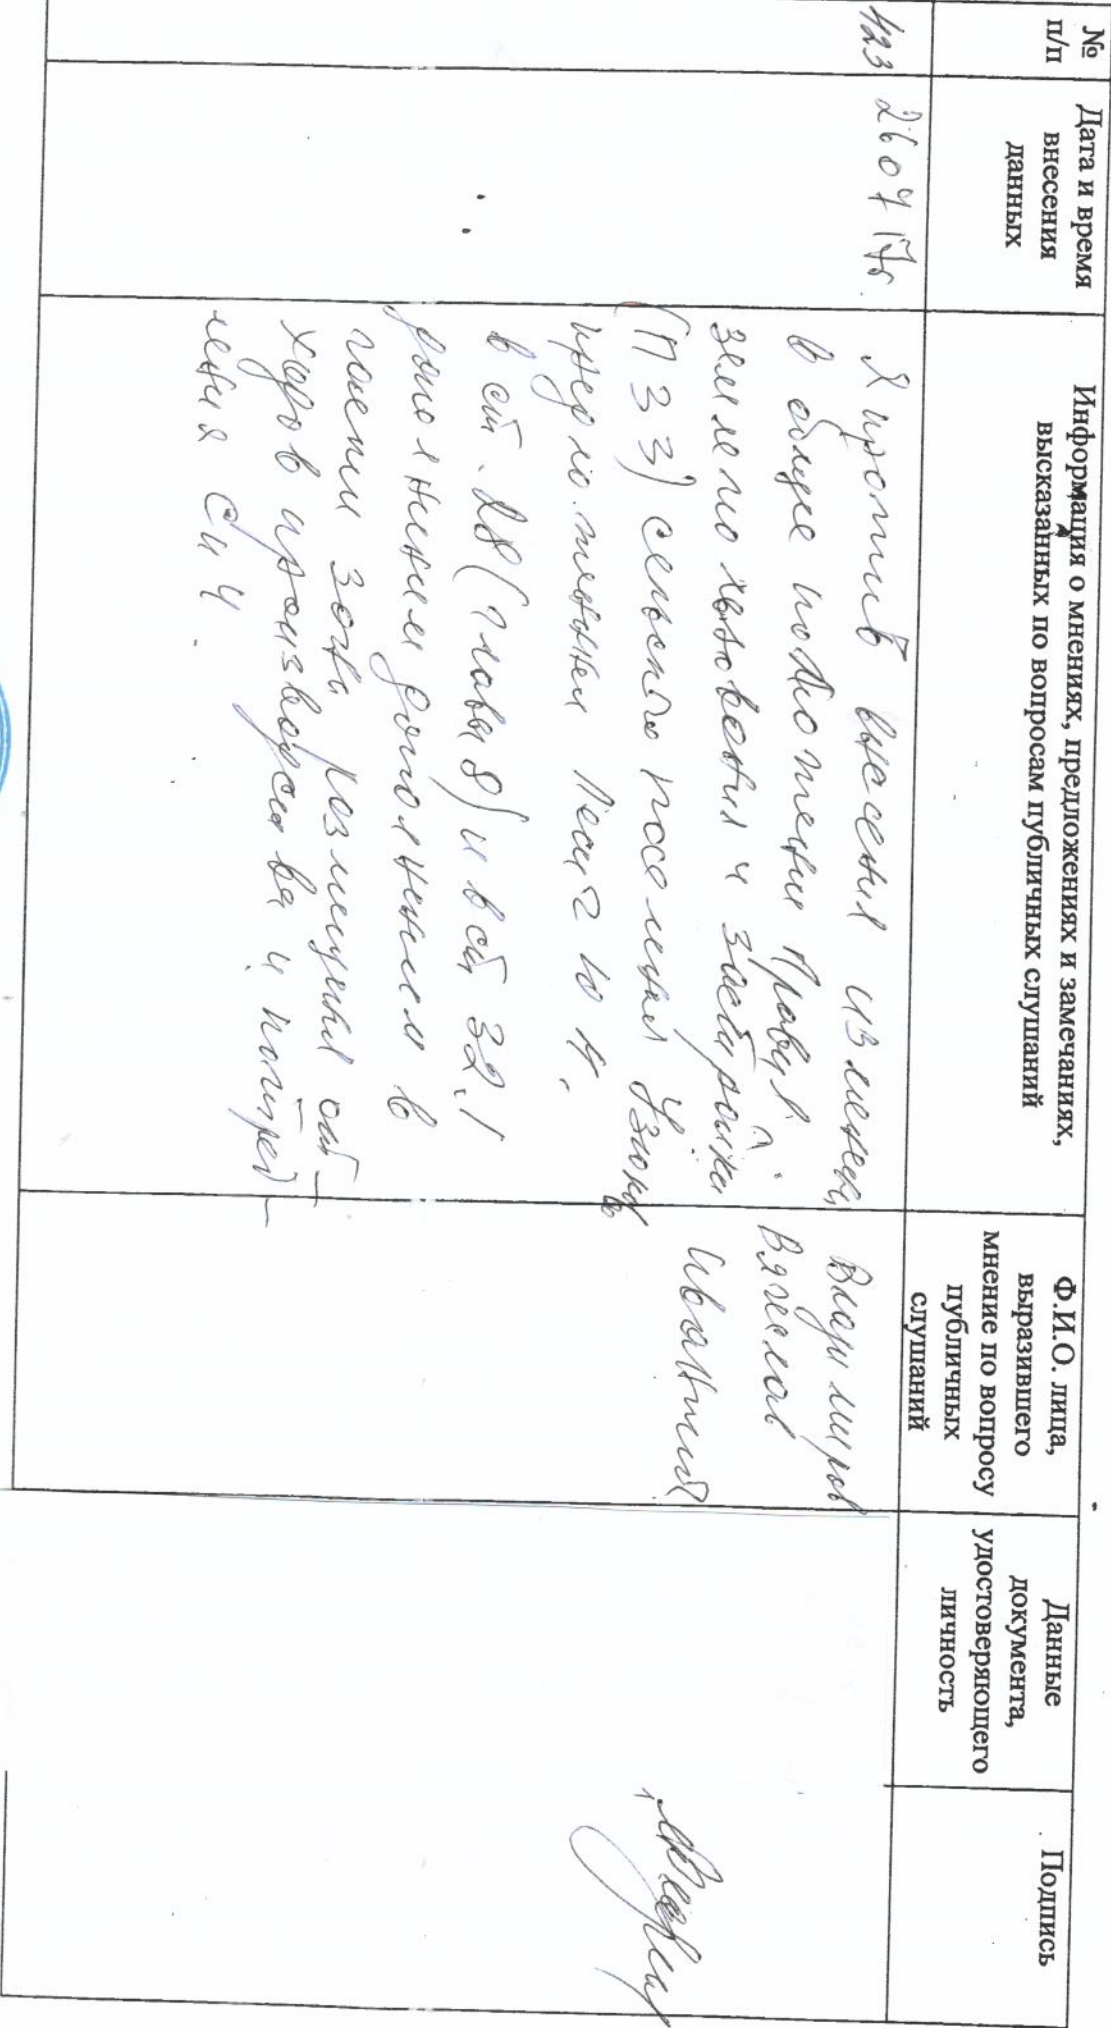 №
п/п
Дата и время
внесения
данных
Информация о мнениях, предложениях и замечаниях,
высказанных по вопросам публичных слушаний
Ф.И.О. лица,
выразившего
мнение по вопросу
публичных
слушаний
Данные
документа,
удостоверяющего
личность
Подпись
123
26 07 17г.
Я против внесения изменен.
в общие положения Правил
землепользования и застройки
(ПЗЗ) сельского поселения
в ст. 28 (глава 8) и в ст 32.1
дополнением в
зоны размещения от-
ходов производства и потреб-
ления СИ 4.
Владимиров
Вячеслав
Иванович